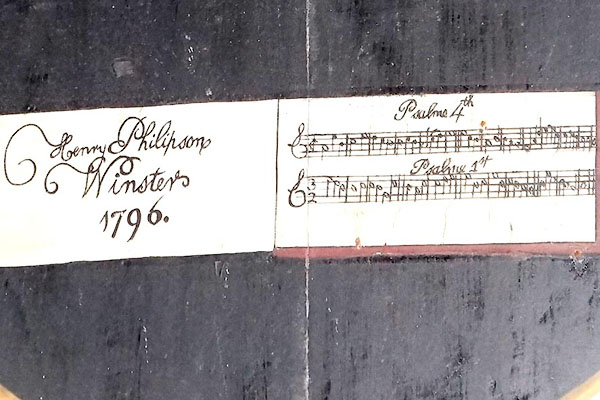 Henry Philipson
Winster
1796.
Psalme 4th
Psalme 1st
3
2